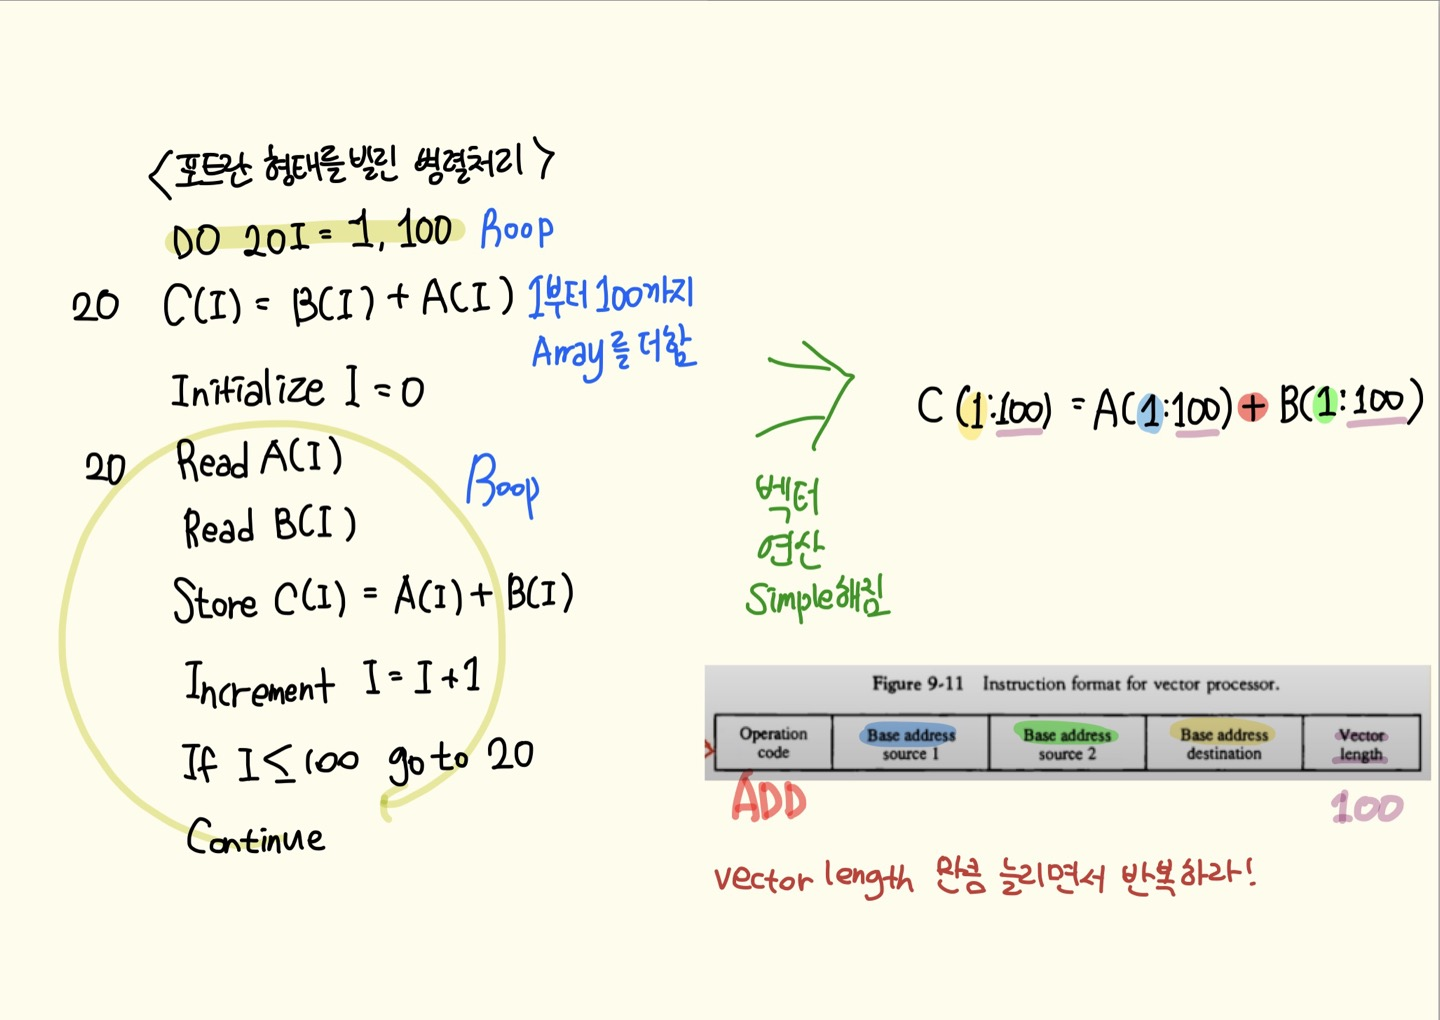 <포트란 형태를 빌린 병렬처리>
DO 20I = 1, 100 Roop
20 C(I) = B(I) + A(I) 1부터 100까지
Array를 더함
Initialize I = 0
20 Read A(I)
Roop
Read B(I)
Store C(I) = A(I) + B(I)
Increment I = I + 1
If I ≤ 100 go to 20
Continue
벡터
연산
Simple해짐
C (1:100) = A(1:100) + B(1:100)
Figure 9-11 Instruction format for vector processor.
Operation code
Base address source 1
Base address source 2
Base address destination
Vector length
ADD
100
vector length 만큼 늘리면서 반복하라!